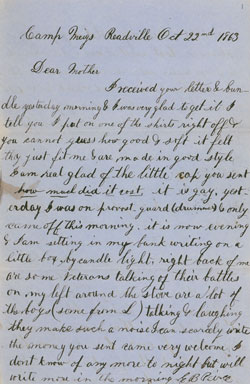 1
Camp Meigs Readville Oct 22nd 1863
Dear Mother
I received your letter & bun-
dle yesterday morning & I was very glad to get it I
tell you I put on one of the shirts right off &
you cannot guess how good & soft it felt
they just fit me & are made in good style
I am real glad of the little cap you sent
how much did it cost, it is gay, yest
erday I was on provost guard (drums) & only
came off this morning, it is now evening
& I am sitting in my bunk writing on a
little box by candle light, right back of me
are some Veterans talking of their battles
on my left around the stove are a lot of
the boys (some from L) talking & laughing
they make such a noise I can scarcely write
the money you sent came very welcome I
dont know of any more to night but will
write more in the morning